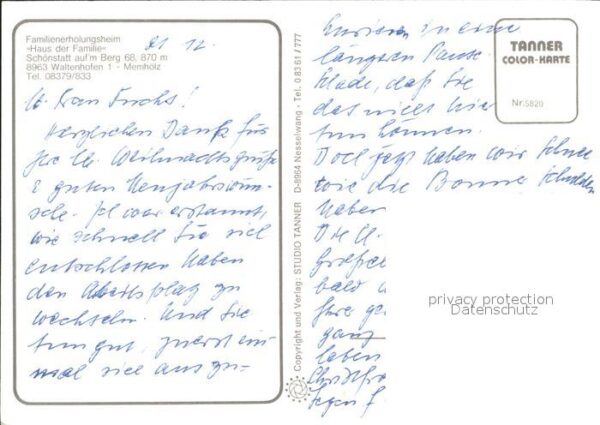 Familienerholungsheim
»Haus der Familie«
Schönstatt auf'm Berg 68, 870 m
8963 Waltenhofen 1 - Memhölz
Tel. 08379/833
21 12.
lb. Frau Fuchs!
Herzlichen Dank für
Ihre lb. Weihnachtsgrüße
& guten Neujahrswün-
sche. Ich war erstaunt,
wie schnell Sie sich
entschlossen haben
den Arbeitsplatz zu
wechseln. Und Sie
tun gut, zuerst ein-
mal sich auszu-
Copyright und Verlag: STUDIO TANNER D-8964 Nesselwang - Tel. 08361/777
in eine
längeren Pause
Schade, daß Sie
das nicht hier
tun können.
Doch jetzt haben wir Schnee
wie die Bonner Schulden
haber
bald
Ihre
ganz
leben
TANNER
COLOR-KARTE
Nr. 5820
privacy protection
Datenschutz